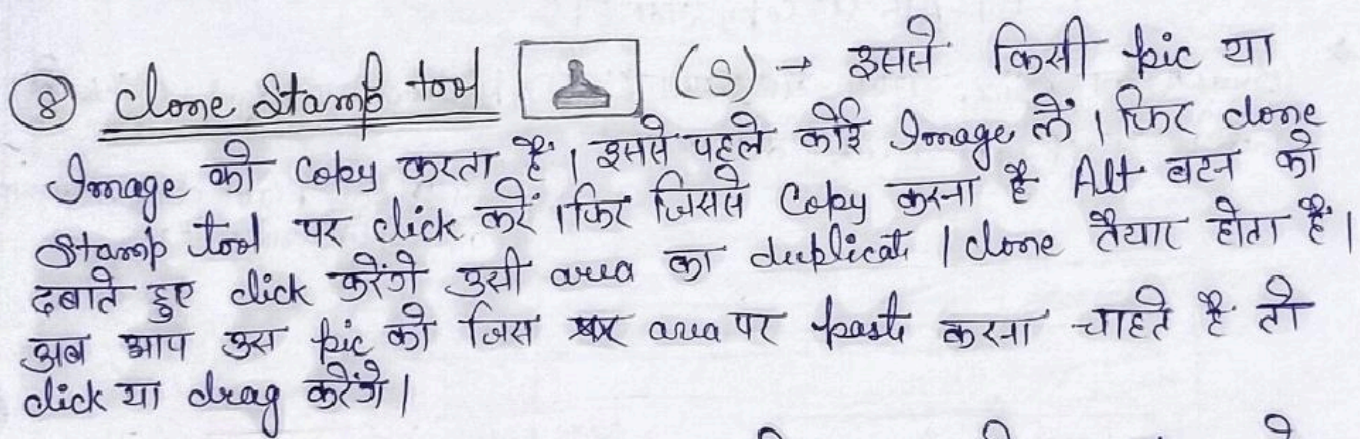 ⑧ Clone Stamp tool (S) → इससे किसी pic या
Image को Copy करता है। इससे पहले कोई Image लें। फिर clone
Stamp tool पर click करें। फिर जिससे Copy करना है Alt बटन को
दबाते हुए click करेंगे उसी area का duplicate / clone तैयार होता है।
अब आप उस pic को जिस area पर paste करना चाहते है तो
click या drag करेंगे।